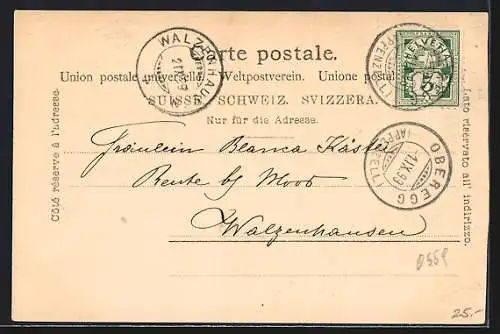 Carte postale.
Union postale universelle. Weltpostverein. Unione postale
SUISSE. SCHWEIZ. SVIZZERA.
Nur für die Adresse.
Côté réservé à l'adresse.
Lato riservato all' indirizzo.
WALZENHAUSEN
HELVETIA
5
OBEREGG
(APPENZELL)
1.IX.99
Fräulein Blanca Käster
Reute by Moos
Walzenhausen
0559
25.-